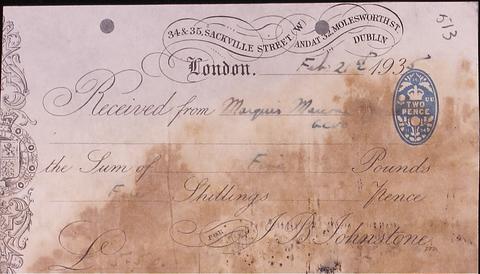 34 & 35, SACKVILLE STREET (W) AND AT 32, MOLESWORTH ST.
DUBLIN
513
London. Feb. 2nd 1935
TWO
PENCE
Received from Marques
the Sum of Five Pounds
Shillings Pence
£ J. B. Johnstone